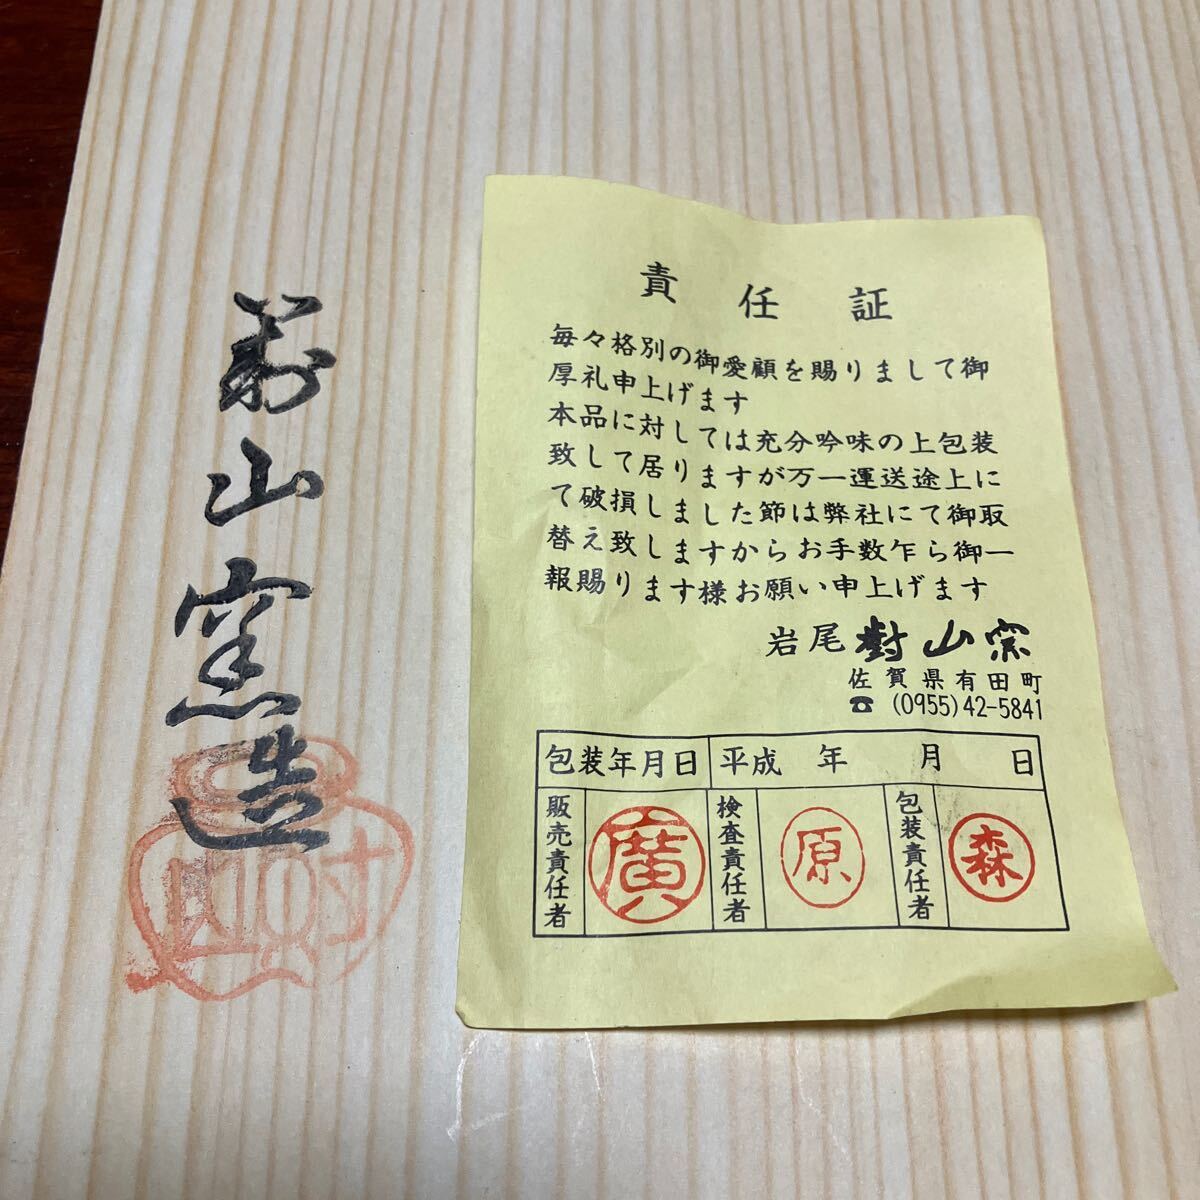 對山窯造
責任証
毎々格別の御愛顧を賜りまして御
厚礼申上げます
本品に対しては充分吟味の上包装
致して居りますが万一運送途上に
て破損しました節は弊社にて御取
替え致しますからお手数乍ら御一
報賜ります様お願い申上げます
岩尾對山窯
佐賀県有田町
☎ (0955)42-5841
包装年月日 平成 年 月 日
販売責任者 廣 検査責任者 原 包装責任者 森